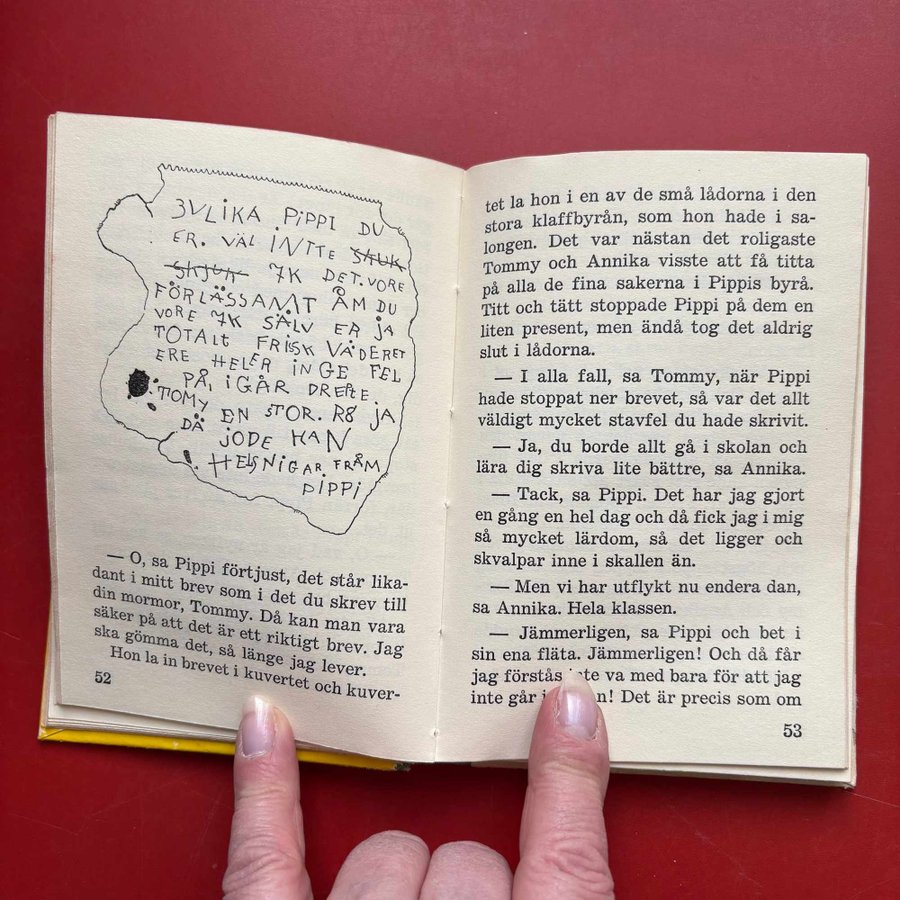 3VLIKA PiPPI DU
ER. VÄL iNTTE SKUK
SKJUK 7K DET. VORE
FÖRLÄSSAMT ÅM DU
VORE 7K SÄLV ER jA
TOTALt FRISK VÄDERET
ERE HELER iNGE FEL
PÅ, i GÅR DREPTE
TOMY EN STOR. R8 jA
DÅ jODE HAN
HELSNiGAR FRÅM
PiPPi
— O, sa Pippi förtjust, det står lika-
dant i mitt brev som i det du skrev till
din mormor, Tommy. Då kan man vara
säker på att det är ett riktigt brev. Jag
ska gömma det, så länge jag lever.
Hon la in brevet i kuvertet och kuver-
52
tet la hon i en av de små lådorna i den
stora klaffbyrån, som hon hade i sa-
longen. Det var nästan det roligaste
Tommy och Annika visste att få titta
på alla de fina sakerna i Pippis byrå.
Titt och tätt stoppade Pippi på dem en
liten present, men ändå tog det aldrig
slut i lådorna.
— I alla fall, sa Tommy, när Pippi
hade stoppat ner brevet, så var det allt
väldigt mycket stavfel du hade skrivit.
— Ja, du borde allt gå i skolan och
lära dig skriva lite bättre, sa Annika.
— Tack, sa Pippi. Det har jag gjort
en gång en hel dag och då fick jag i mig
så mycket lärdom, så det ligger och
skvalpar inne i skallen än.
— Men vi har utflykt nu endera dan,
sa Annika. Hela klassen.
— Jämmerligen, sa Pippi och bet i
sin ena fläta. Jämmerligen! Och då får
jag förstås inte va med bara för att jag
inte går i! Det är precis som om
53